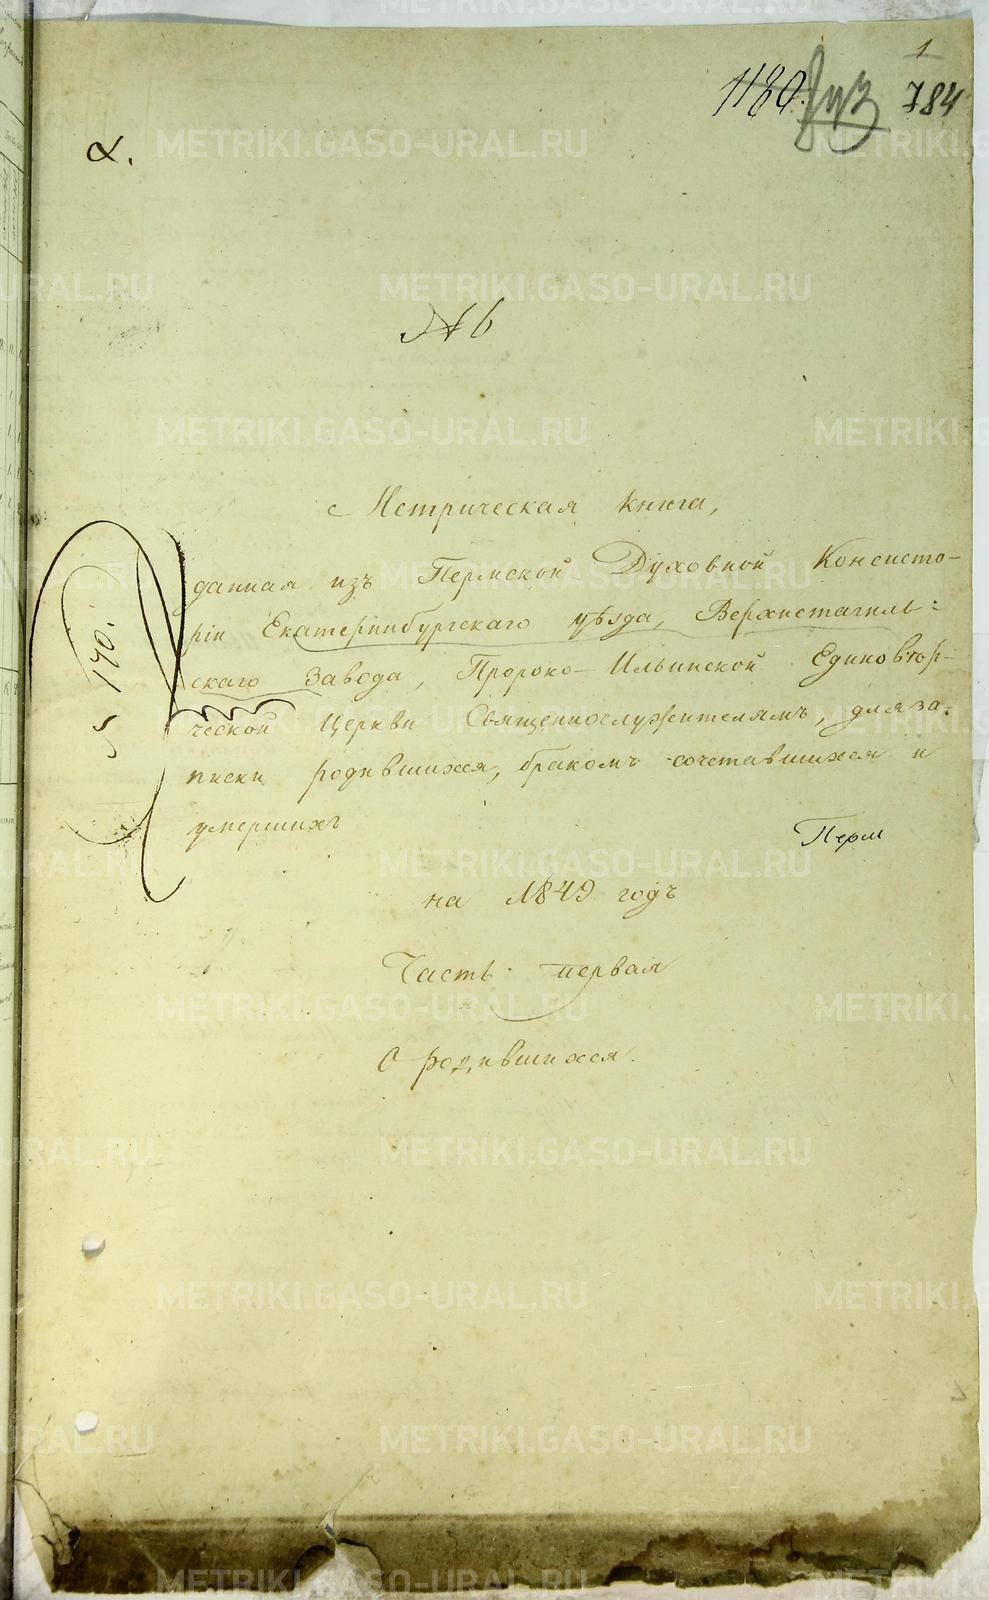 1
1180.
784
№ 6
Метрическая книга,
данная изъ Пермской Духовной Консисто-
ріи Екатеринбургскаго уѣзда, Верхнетагиль=
скаго Завода, Пророко-Ильинской Единовѣр-
ческой Церкви Священнослужителямъ, для за-
писки родившихся, бракомъ сочетавшихся и
умершихъ
Перм
на 1849 годъ
Часть первая
О родившихся.
METRIKI.GASO-URAL.RU